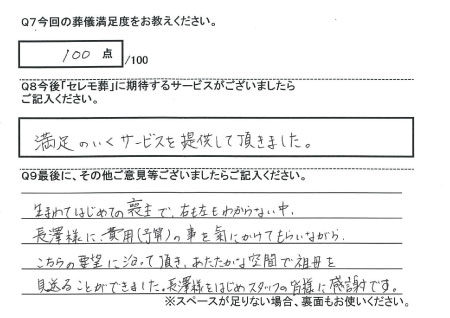 Q7今回の葬儀満足度をお教えください。
100 点 /100
Q8今後「セレモ葬」に期待するサービスがございましたら
ご記入ください。
満足のいくサービスを提供して頂きました。
Q9最後に、その他ご意見等ございましたらご記入ください。
生まれてはじめての喪主で、右も左もわからない中、
長澤様に、費用(予算)の事を気にかけてもらいながら、
こちらの要望に沿って頂き、あたたかな空間で祖母を
見送ることができました。長澤様をはじめスタッフの皆様に感謝です。
※スペースが足りない場合、裏面もお使いください。